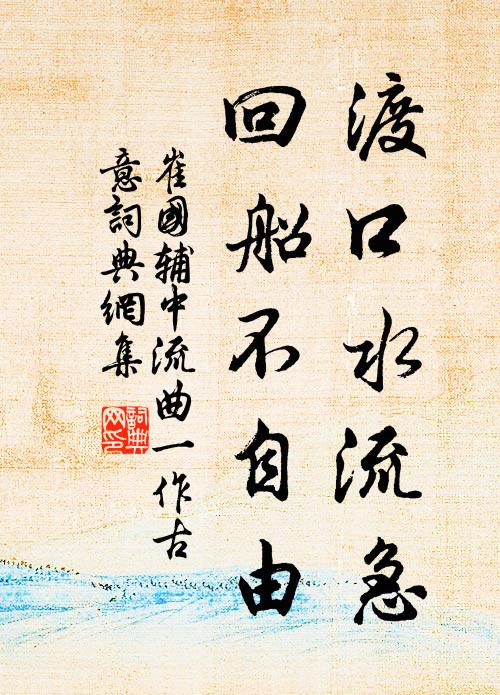 渡口水流急
回船不自由
崔國辅中流曲一作古
意詞典網集
詞典
网印